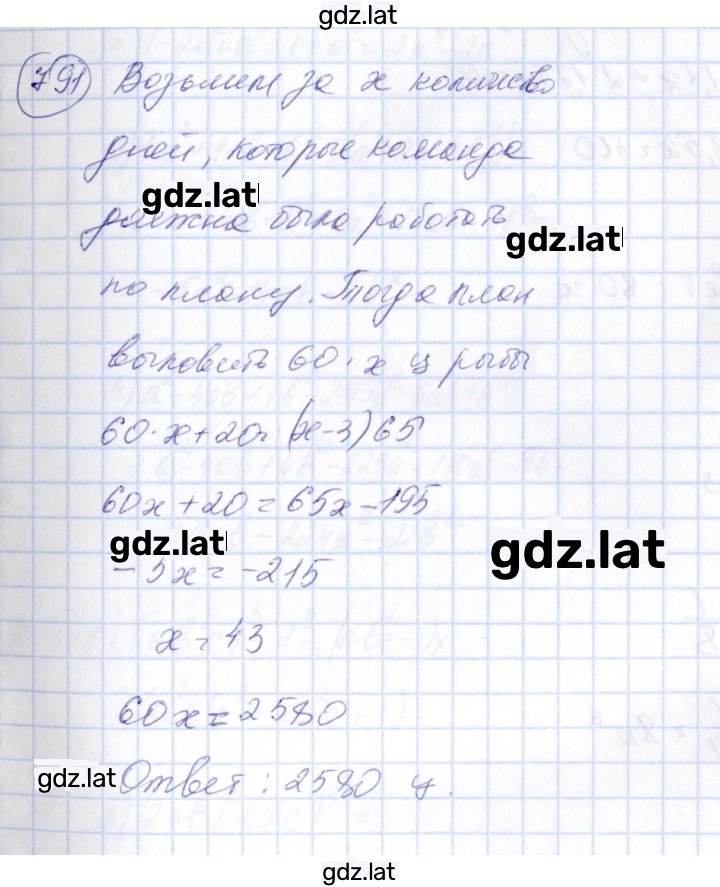 gdz.lat
791 Возьмем за x количество
дней, которые команда
gdz.lat
должна была работать
gdz.lat
по плану. Тогда план
выловить 60·x ц рыбы
60·x+20=(x-3)65
60x+20=65x-195
gdz.lat
gdz.lat
-5x=-215
x=43
60x=2580
gdz.lat
Ответ: 2580 ц.
gdz.lat